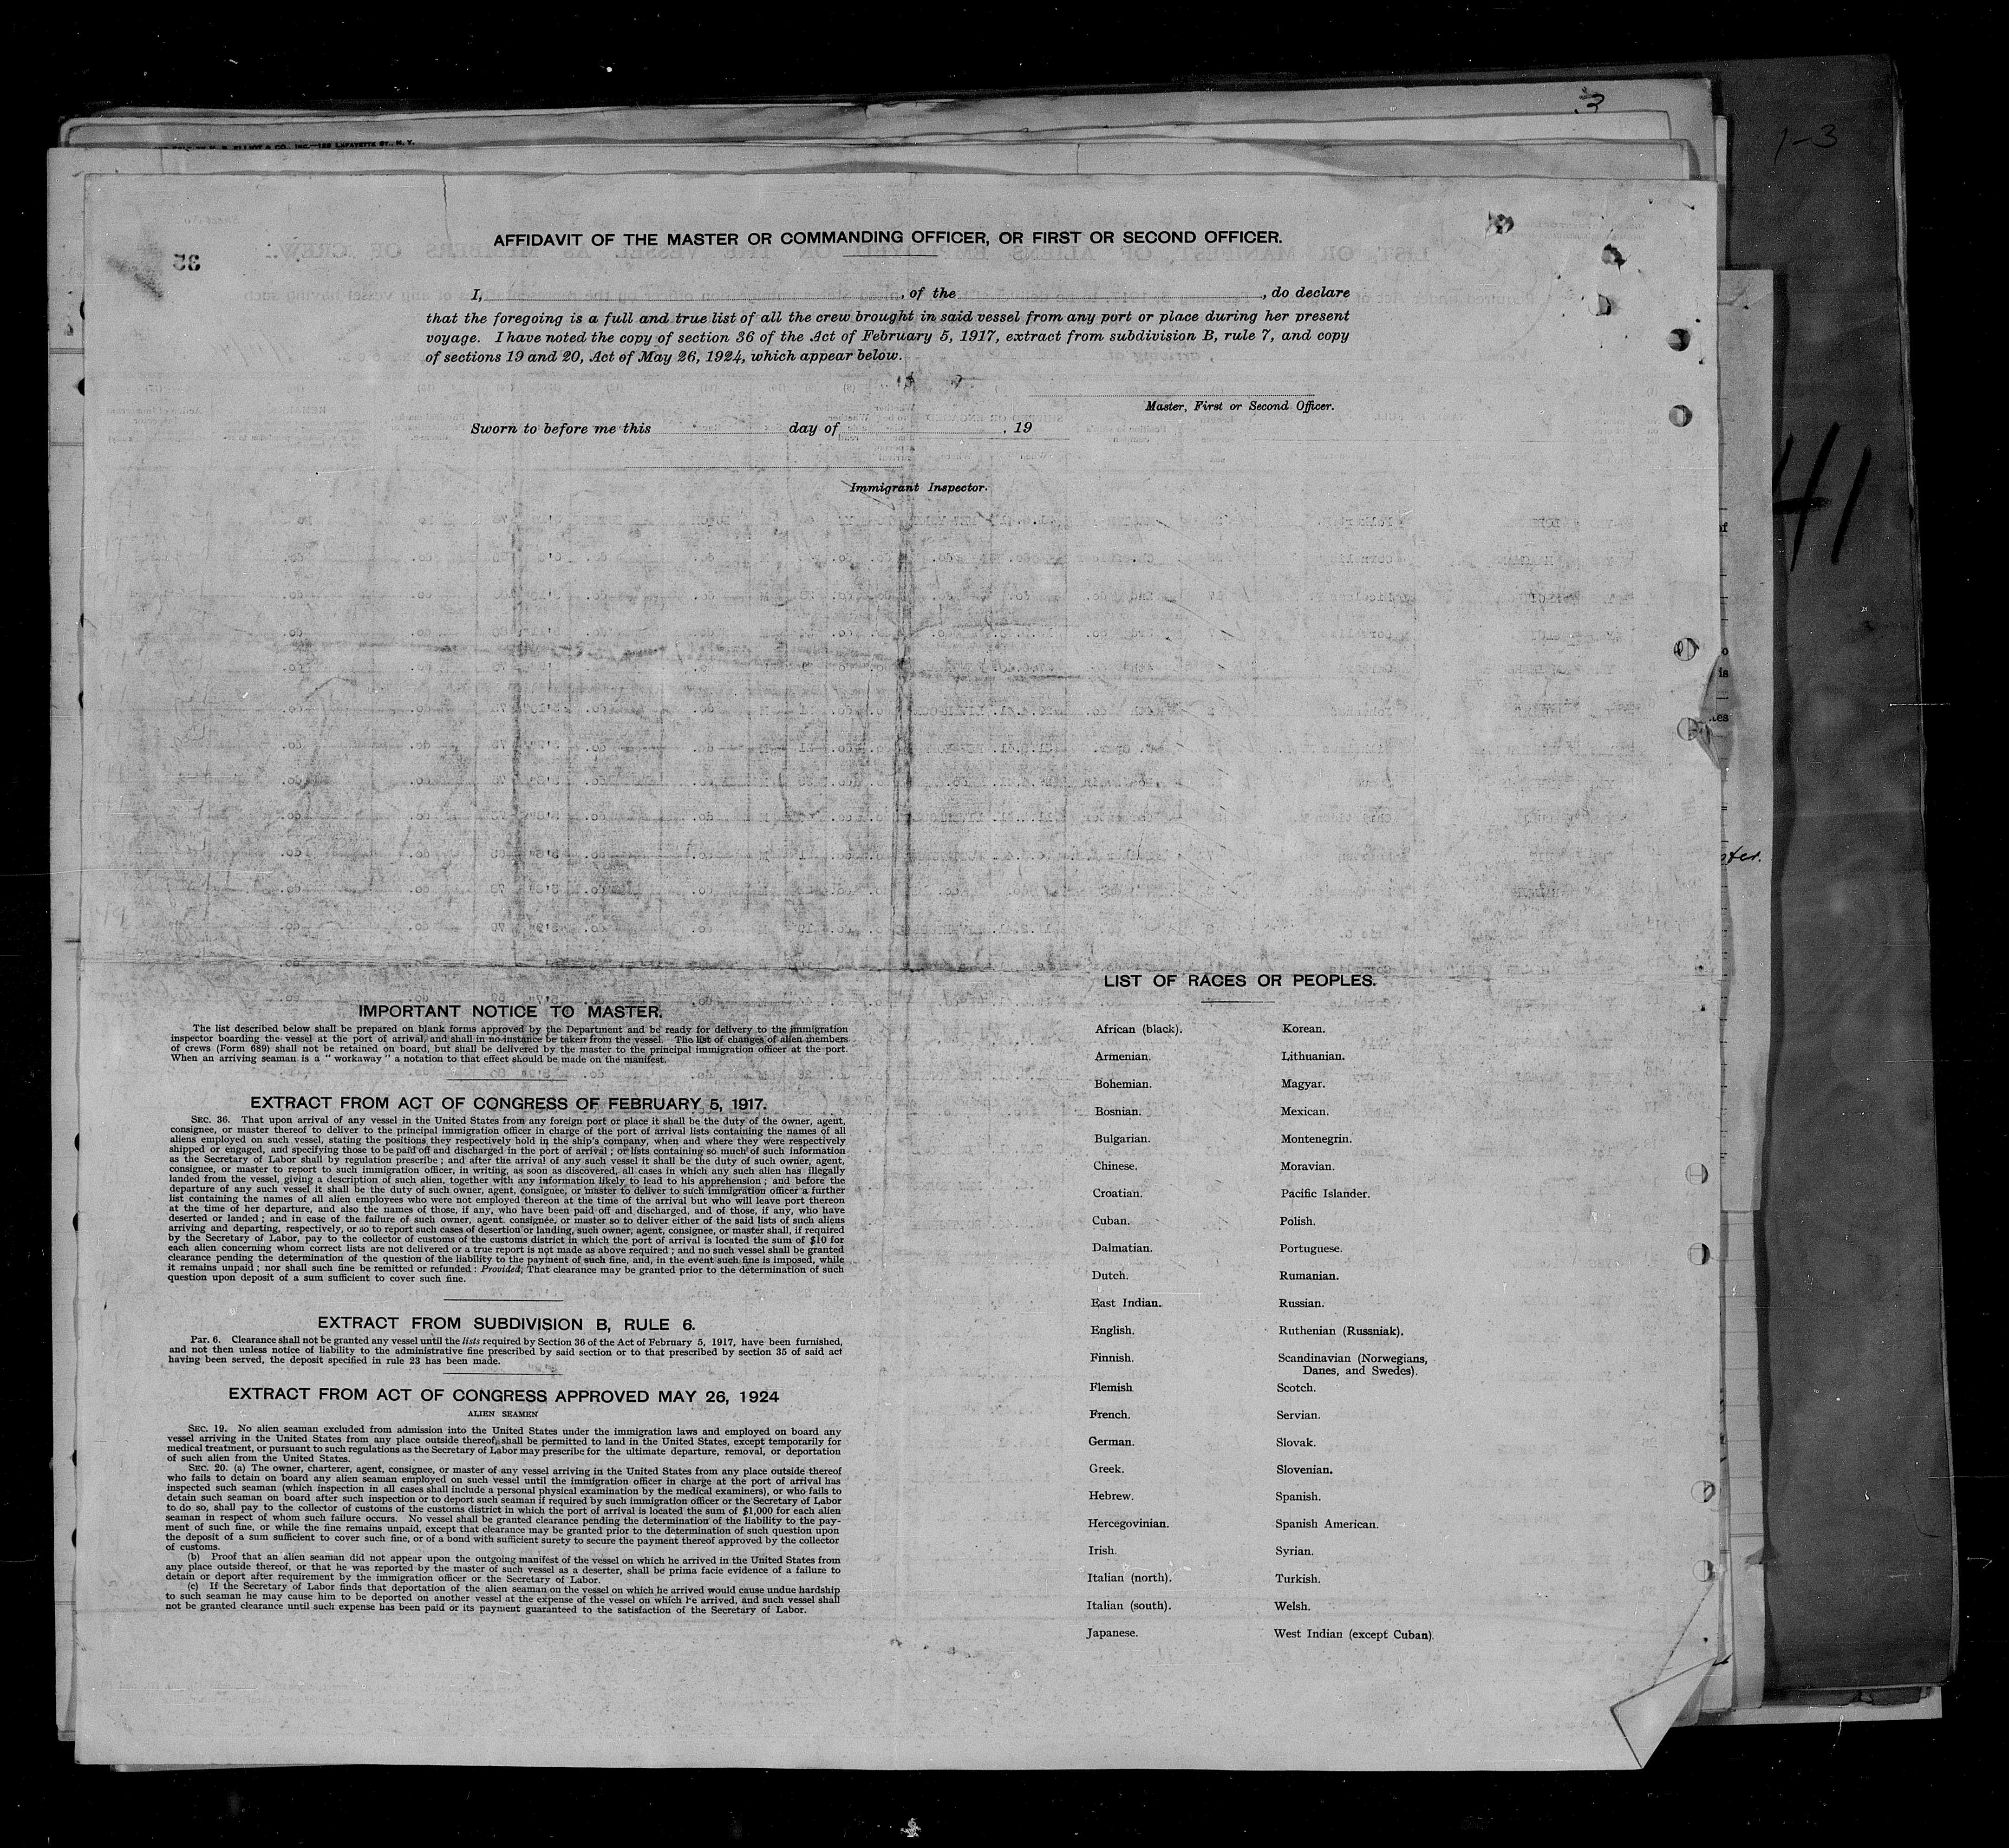 3
1-3
ELLIOT & CO., INC.—129 LAFAYETTE ST., N. Y.
41
AFFIDAVIT OF THE MASTER OR COMMANDING OFFICER, OR FIRST OR SECOND OFFICER.
I, , of the , do declare
that the foregoing is a full and true list of all the crew brought in said vessel from any port or place during her present
voyage. I have noted the copy of section 36 of the Act of February 5, 1917, extract from subdivision B, rule 7, and copy
of sections 19 and 20, Act of May 26, 1924, which appear below.
Master, First or Second Officer.
Sworn to before me this day of , 19
Immigrant Inspector.
IMPORTANT NOTICE TO MASTER.
The list described below shall be prepared on blank forms approved by the Department and be ready for delivery to the immigration
inspector boarding the vessel at the port of arrival, and shall in no instance be taken from the vessel. The list of changes of alien members
of crews (Form 689) shall not be retained on board, but shall be delivered by the master to the principal immigration officer at the port.
When an arriving seaman is a " workaway " a notation to that effect should be made on the manifest.
EXTRACT FROM ACT OF CONGRESS OF FEBRUARY 5, 1917.
SEC. 36. That upon arrival of any vessel in the United States from any foreign port or place it shall be the duty of the owner, agent,
consignee, or master thereof to deliver to the principal immigration officer in charge of the port of arrival lists containing the names of all
aliens employed on such vessel, stating the positions they respectively hold in the ship's company, when and where they were respectively
shipped or engaged, and specifying those to be paid off and discharged in the port of arrival ; or lists containing so much of such information
as the Secretary of Labor shall by regulation prescribe ; and after the arrival of any such vessel it shall be the duty of such owner, agent,
consignee, or master to report to such immigration officer, in writing, as soon as discovered, all cases in which any such alien has illegally
landed from the vessel, giving a description of such alien, together with any information likely to lead to his apprehension ; and before the
departure of any such vessel it shall be the duty of such owner, agent, consignee, or master to deliver to such immigration officer a further
list containing the names of all alien employees who were not employed thereon at the time of the arrival but who will leave port thereon
at the time of her departure, and also the names of those, if any, who have been paid off and discharged, and of those, if any, who have
deserted or landed ; and in case of the failure of such owner, agent, consignee, or master so to deliver either of the said lists of such aliens
arriving and departing, respectively, or so to report such cases of desertion or landing, such owner, agent, consignee, or master shall, if required
by the Secretary of Labor, pay to the collector of customs of the customs district in which the port of arrival is located the sum of $10 for
each alien concerning whom correct lists are not delivered or a true report is not made as above required ; and no such vessel shall be granted
clearance pending the determination of the question of the liability to the payment of such fine, and, in the event such fine is imposed, while
it remains unpaid ; nor shall such fine be remitted or refunded : Provided, That clearance may be granted prior to the determination of such
question upon deposit of a sum sufficient to cover such fine.
EXTRACT FROM SUBDIVISION B, RULE 6.
PAR. 6. Clearance shall not be granted any vessel until the lists required by Section 36 of the Act of February 5, 1917, have been furnished,
and not then unless notice of liability to the administrative fine prescribed by said section or to that prescribed by section 35 of said act
having been served, the deposit specified in rule 23 has been made.
EXTRACT FROM ACT OF CONGRESS APPROVED MAY 26, 1924
ALIEN SEAMEN
SEC. 19. No alien seaman excluded from admission into the United States under the immigration laws and employed on board any
vessel arriving in the United States from any place outside thereof, shall be permitted to land in the United States, except temporarily for
medical treatment, or pursuant to such regulations as the Secretary of Labor may prescribe for the ultimate departure, removal, or deportation
of such alien from the United States.
SEC. 20. (a) The owner, charterer, agent, consignee, or master of any vessel arriving in the United States from any place outside thereof
who fails to detain on board any alien seaman employed on such vessel until the immigration officer in charge at the port of arrival has
inspected such seaman (which inspection in all cases shall include a personal physical examination by the medical examiners), or who fails to
detain such seaman on board after such inspection or to deport such seaman if required by such immigration officer or the Secretary of Labor
to do so, shall pay to the collector of customs of the customs district in which the port of arrival is located the sum of $1,000 for each alien
seaman in respect of whom such failure occurs. No vessel shall be granted clearance pending the determination of the liability to the pay-
ment of such fine, or while the fine remains unpaid, except that clearance may be granted prior to the determination of such question upon
the deposit of a sum sufficient to cover such fine, or of a bond with sufficient surety to secure the payment thereof approved by the collector
of customs.
(b) Proof that an alien seaman did not appear upon the outgoing manifest of the vessel on which he arrived in the United States from
any place outside thereof, or that he was reported by the master of such vessel as a deserter, shall be prima facie evidence of a failure to
detain or deport after requirement by the immigration officer or the Secretary of Labor.
(c) If the Secretary of Labor finds that deportation of the alien seaman on the vessel on which he arrived would cause undue hardship
to such seaman he may cause him to be deported on another vessel at the expense of the vessel on which he arrived, and such vessel shall
not be granted clearance until such expense has been paid or its payment guaranteed to the satisfaction of the Secretary of Labor.
LIST OF RACES OR PEOPLES.
African (black).
Armenian.
Bohemian.
Bosnian.
Bulgarian.
Chinese.
Croatian.
Cuban.
Dalmatian.
Dutch.
East Indian.
English.
Finnish.
Flemish
French.
German.
Greek.
Hebrew.
Hercegovinian.
Irish.
Italian (north).
Italian (south).
Japanese.
Korean.
Lithuanian.
Magyar.
Mexican.
Montenegrin.
Moravian.
Pacific Islander.
Polish.
Portuguese.
Rumanian.
Russian.
Ruthenian (Russniak).
Scandinavian (Norwegians,
Danes, and Swedes).
Scotch.
Servian.
Slovak.
Slovenian.
Spanish.
Spanish American.
Syrian.
Turkish.
Welsh.
West Indian (except Cuban).